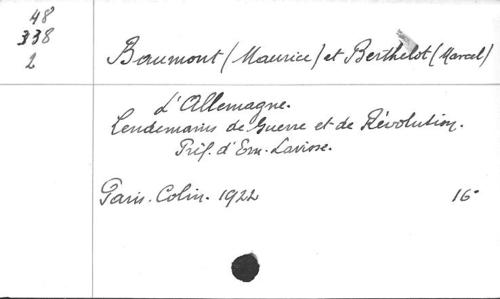 48
338
2
Baumont (Maurice) et Berthelot (Marcel)
L'Allemagne.
Lendemains de Guerre et de Révolution.
Préf. d'Ern. Lavisse.
Paris. Colin. 1922 16°